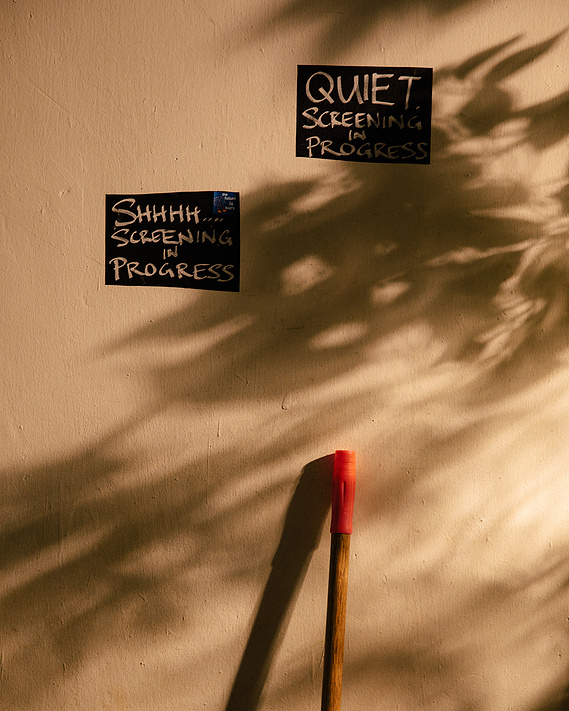 QUIET.
SCREENING
IN
PROGRESS
SHHHH....
SCREENING
IN
PROGRESS